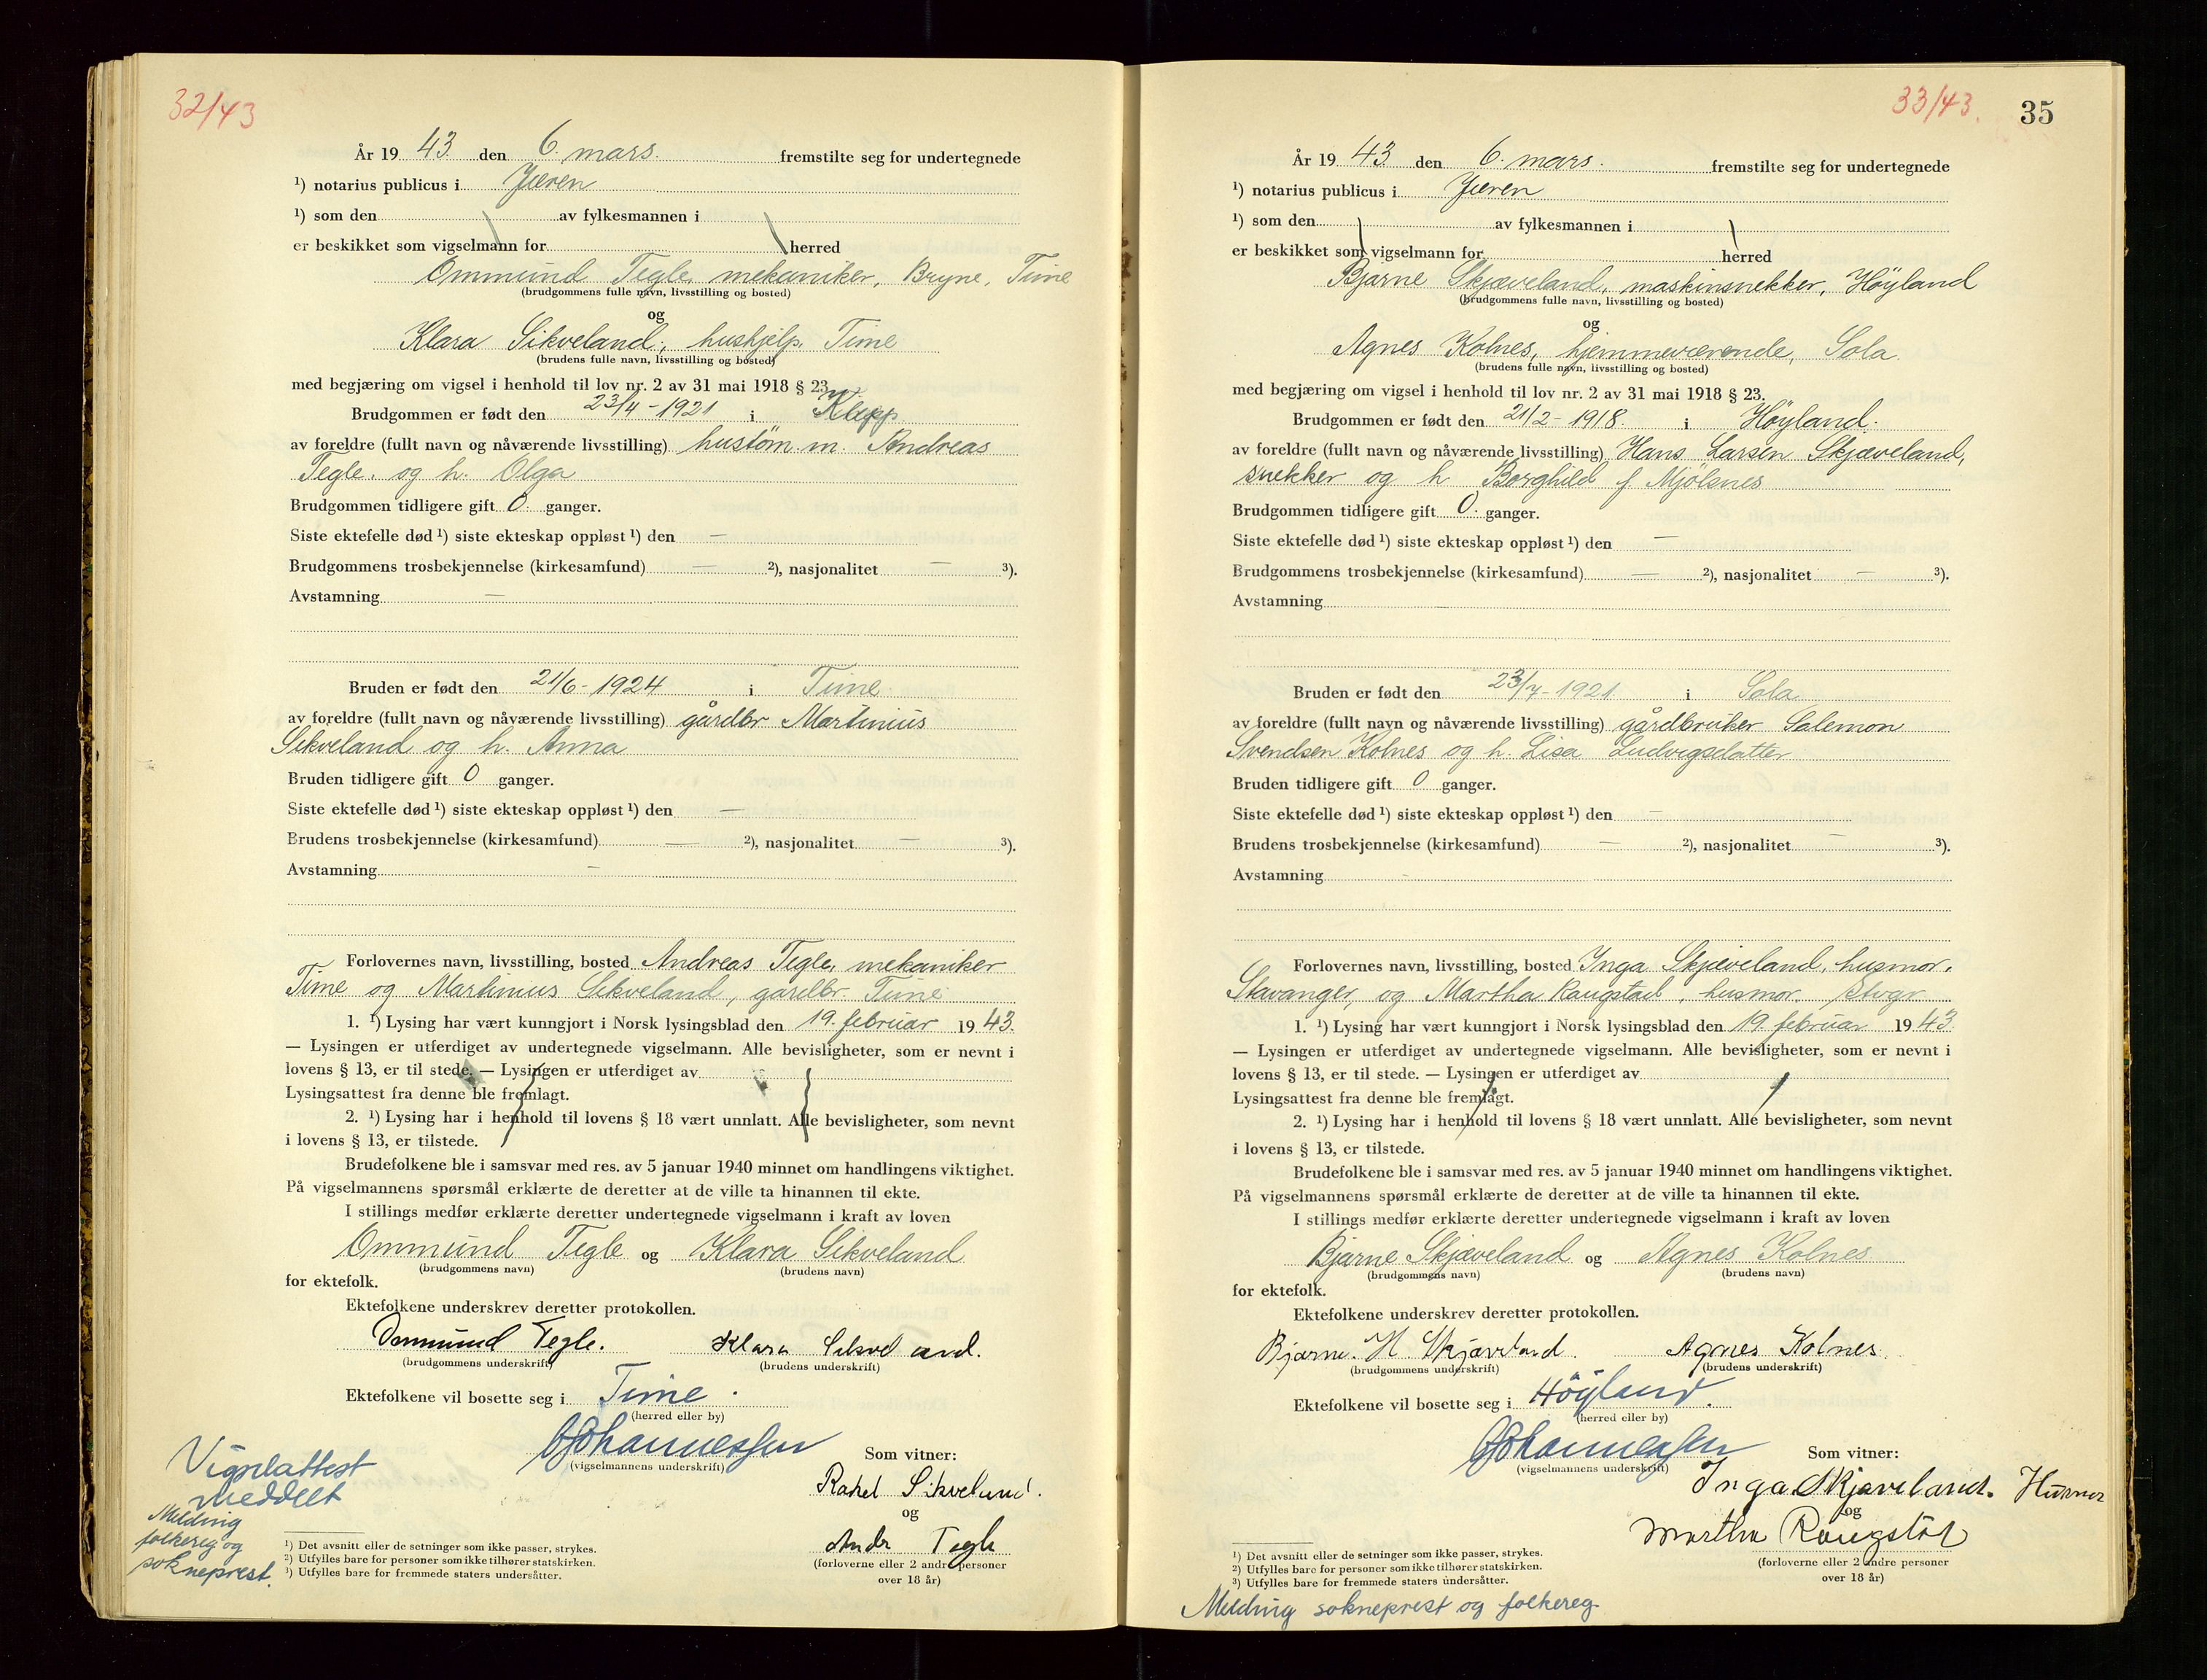 32/43
År 19 43. den 6. mars. fremstilte seg for undertegnede
¹) notarius publicus i Jæren
¹) som den av fylkesmannen i
er beskikket som vigselmann for herred
Ommund Tegle, mekaniker, Bryne, Time
(brudgommens fulle navn, livsstilling og bosted)
og
Klara Sikveland, hushjelp, Time
(brudens fulle navn, livsstilling og bosted)
med begjæring om vigsel i henhold til lov nr. 2 av 31 mai 1918 § 23.
Brudgommen er født den 23/4 - 1921 i Klepp
av foreldre (fullt navn og nåværende livsstilling) hustøm.m. Andreas
Tegle. og h. Olga
Brudgommen tidligere gift 0. ganger.
Siste ektefelle død ¹) siste ekteskap oppløst ¹) den —
Brudgommens trosbekjennelse (kirkesamfund) — ²), nasjonalitet — ³).
Avstamning —
Bruden er født den 21/6 - 1924 i Time
av foreldre (fullt navn og nåværende livsstilling) gårdbr Martinius
Sikveland og h. Anna
Bruden tidligere gift 0 ganger.
Siste ektefelle død ¹) siste ekteskap oppløst ¹) den —
Brudens trosbekjennelse (kirkesamfund) — ²), nasjonalitet — ³).
Avstamning —
Forlovernes navn, livsstilling, bosted Andreas Tegle, mekaniker
Time og Martinius Sikveland, gardbr. Time
1. ¹) Lysing har vært kunngjort i Norsk lysingsblad den 19. februar 19 43.
— Lysingen er utferdiget av undertegnede vigselmann. Alle bevisligheter, som er nevnt i
lovens § 13, er til stede. — Lysingen er utferdiget av
Lysingsattest fra denne ble fremlagt.
2. ¹) Lysing har i henhold til lovens § 18 vært unnlatt. Alle bevisligheter, som nevnt
i lovens § 13, er tilstede.
Brudefolkene ble i samsvar med res. av 5 januar 1940 minnet om handlingens viktighet.
På vigselmannens spørsmål erklærte de deretter at de ville ta hinannen til ekte.
I stillings medfør erklærte deretter undertegnede vigselmann i kraft av loven
Ommund Tegle og Klara Sikveland
(brudgommens navn) (brudens navn)
for ektefolk.
Ektefolkene underskrev deretter protokollen.
Ommund Tegle. Klara Sikveland.
(brudgommens underskrift) (brudens underskrift)
Ektefolkene vil bosette seg i Time.
(herred eller by)
Johannessen
(vigselmannens underskrift)
Som vitner:
Rakel Sikveland.
og
Andr Tegle
(forloverne eller 2 andre personer
over 18 år)
Vigselattest
meddelt
Melding
folkereg og
sokneprest.
¹) Det avsnitt eller de setninger som ikke passer, strykes.
²) Utfylles bare for personer som ikke tilhører statskirken.
³) Utfylles bare for fremmede staters undersåtter.
33/43. 35
År 19 43 den 6. mars. fremstilte seg for undertegnede
¹) notarius publicus i Jæren
¹) som den av fylkesmannen i
er beskikket som vigselmann for herred
Bjarne Skjæveland, maskinsnekker, Höyland
(brudgommens fulle navn, livsstilling og bosted)
og
Agnes Kolnes, hjemmeværende, Sola.
(brudens fulle navn, livsstilling og bosted)
med begjæring om vigsel i henhold til lov nr. 2 av 31 mai 1918 § 23.
Brudgommen er født den 21/2 - 1918. i Höyland.
av foreldre (fullt navn og nåværende livsstilling) Hans Larsen Skjæveland,
snekker og h Borghild f Mjölsnes
Brudgommen tidligere gift 0. ganger.
Siste ektefelle død ¹) siste ekteskap oppløst ¹) den —
Brudgommens trosbekjennelse (kirkesamfund) — ²), nasjonalitet — ³).
Avstamning
Bruden er født den 23/7 - 1921 i Sola
av foreldre (fullt navn og nåværende livsstilling) gårdbruker Salemon
Svendsen Kolnes og h. Lisa Ludvigsdatter
Bruden tidligere gift 0 ganger.
Siste ektefelle død ¹) siste ekteskap oppløst ¹) den —
Brudens trosbekjennelse (kirkesamfund) — ²), nasjonalitet — ³).
Avstamning -
Forlovernes navn, livsstilling, bosted Inga Skjæveland, husmor.
Stavanger, og Martha Raugstad, husmor. Stvgr
1. ¹) Lysing har vært kunngjort i Norsk lysingsblad den 19. februar 19 43
— Lysingen er utferdiget av undertegnede vigselmann. Alle bevisligheter, som er nevnt i
lovens § 13, er til stede. — Lysingen er utferdiget av
Lysingsattest fra denne ble fremlagt.
2. ¹) Lysing har i henhold til lovens § 18 vært unnlatt. Alle bevisligheter, som nevnt
i lovens § 13, er tilstede.
Brudefolkene ble i samsvar med res. av 5 januar 1940 minnet om handlingens viktighet.
På vigselmannens spørsmål erklærte de deretter at de ville ta hinannen til ekte.
I stillings medfør erklærte deretter undertegnede vigselmann i kraft av loven
Bjarne Skjæveland og Agnes Kolnes
(brudgommens navn) (brudens navn)
for ektefolk.
Ektefolkene underskrev deretter protokollen.
Bjarne. H. Skjæveland. Agnes Kolnes.
(brudgommens underskrift) (brudens underskrift)
Ektefolkene vil bosette seg i Höyland.
(herred eller by)
Johannessen
(vigselmannens underskrift)
Som vitner:
Inga Skjæveland. Husmor
og
Martha Raugstad
(forloverne eller 2 andre personer
over 18 år)
¹) Det avsnitt eller de setninger som ikke passer, strykes.
²) Utfylles bare for personer som ikke tilhører statskirken.
³) Utfylles bare for fremmede staters undersåtter.
Melding sokneprest og folkereg.